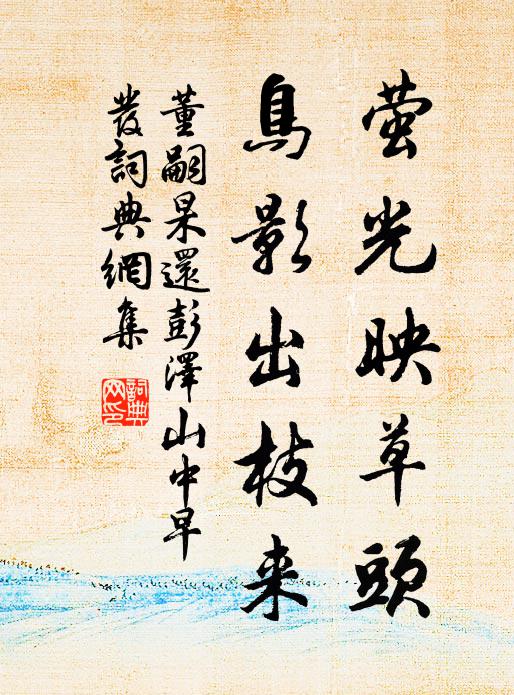 萤光映草頭
鳥影出枝来
董嗣杲還彭澤山中早
發詞典網集
詞典
网印